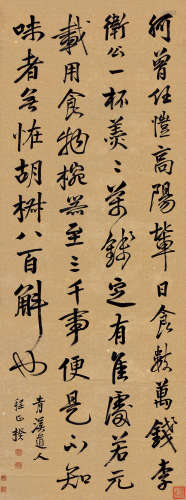 何曾任愷高陽輩日食數萬錢李
衛公一杯羹二萬錢定有焦處若元
載用食物椀器至三千事便是不知
味者無怪胡椒八百斛也
青溪道人
程正揆